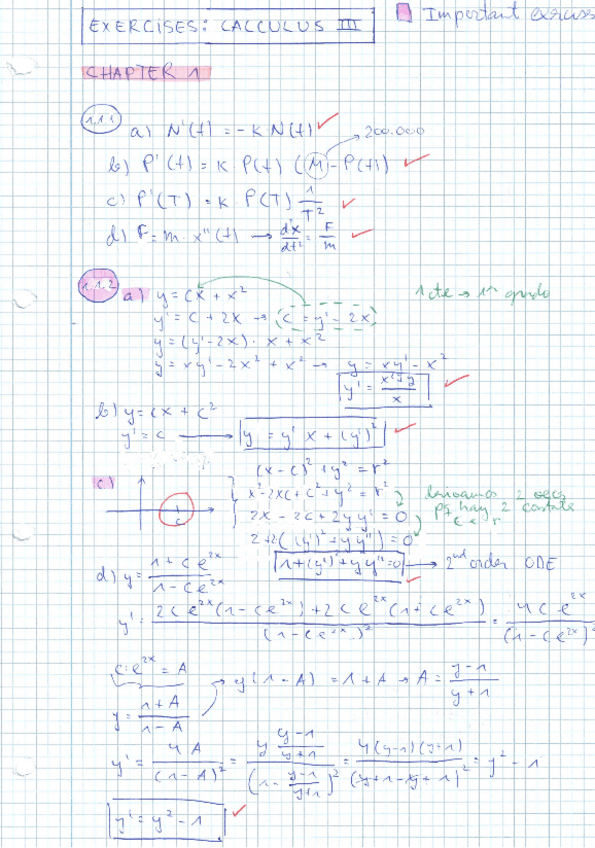 EXERCISES: CALCULUS III
Important
CHAPTER 1
1.1.1
a) N'(t) = -K N(t)
200.000
b) P'(t) = K · P(t) (M - P(t))
c) P'(T) = K P(T) 1/T²
d) F = m · x''(t) → d²x/dt² = F/m
1.1.2
a) y = Cx + x²
1 cte → 1er grado
y' = C + 2x → C = y' - 2x
y = (y' - 2x) · x + x²
y = xy' - 2x² + x² → y = xy' - x²
y' = x²+y/x
b) y = Cx + C²
y' = C → y = y' x + (y')²
(x-c)² + y² = r²
c)
x² - 2xc + c² + y² = r²
2x - 2c + 2yy' = 0
2 + 2((y')² + yy'') = 0
derivamos 2 veces
pq hay 2 
c e r
1 + (y')² + yy'' = 0 → 2nd order ODE
d) y = 1+Ce^2x / 1-Ce^2x
y' = 2Ce^2x (1-Ce^2x) + 2Ce^2x (1+Ce^2x) / (1-Ce^2x)² = 4Ce^2x / (1-Ce^2x)²
C·e^2x = A
y = 1+A / 1-A → y(1-A) = 1+A → A = y-1 / y+1
y' = 4A / (1-A)² = 4 y-1/y+1 / (1 - y-1/y+1)² = 4(y-1)(y+1) / (y+1-y+1)² = y² - 1
y' = y² - 1